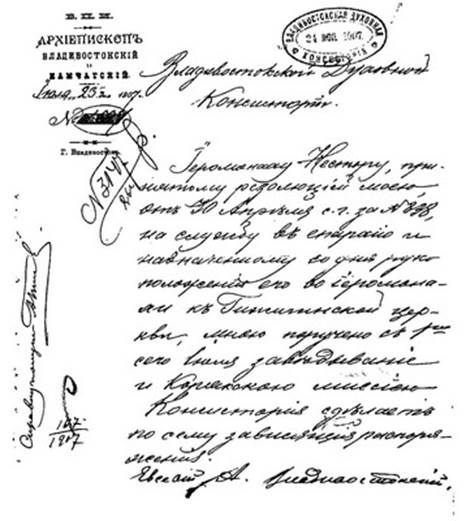 В. П. И.
АРХІЕПИСКОПЪ
ВЛАДИВОСТОКСКІЙ
И
КАМЧАТСКІЙ.
Іюля 23 1907 г.
№
Г. Владивостокъ.
ВЛАДИВОСТОКСКАЯ ДУХОВНАЯ
24 ІЮЛ. 1907
КОНСИСТОРІЯ
Владивостокской Духовной
Консисторіи.
№ 3147
Іеромонаху Нестору, при-
нятому резолюціей моею,
отъ 30 Апрѣля с. г. за № 898,
на службу въ епархію и
назначенному со дня руко
положенія его во іеромона-
ха къ Гижигинской цер-
кви, мною поручено съ 1го
сего іюля завѣдываніе
и Корякскою миссіею
Консисторія сдѣлаетъ
по сему зависящія распоря-
женія.
Евсевій А. Владивостокскій.
1907